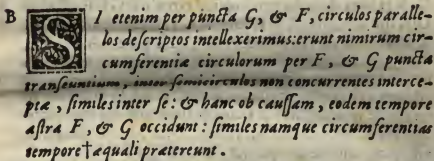 B SI etenim per puncta G, & F, circulos paralle-
los descriptos intellexerimus: erunt nimirum cir-
cumferentiæ circulorum per F, & G puncta
transeuntium, inter semicirculos non concurrentes interce-
ptæ, similes inter se: & hanc ob caussam, eodem tempore
astra F, & G occidunt: similes namque circumferentias
tempore†æquali prætereunt.